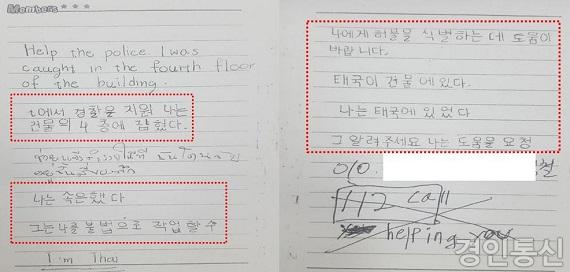 Members
Help the police. I was
caught in the fourth floor
of the building.
에서 경찰을 지원 나는
건물의 4 층에 잡혔다.
나는 속은했다
그는 나를 불법으로 작업할 수
I'm Thai
나에게 허물을 식별하는 데 도움이
바랍니다.
태국이 건물에 있다.
나는 태국에 있었다
그 알려주세요 나는 도움을 요청
010.
112 call
helping you
경인통신